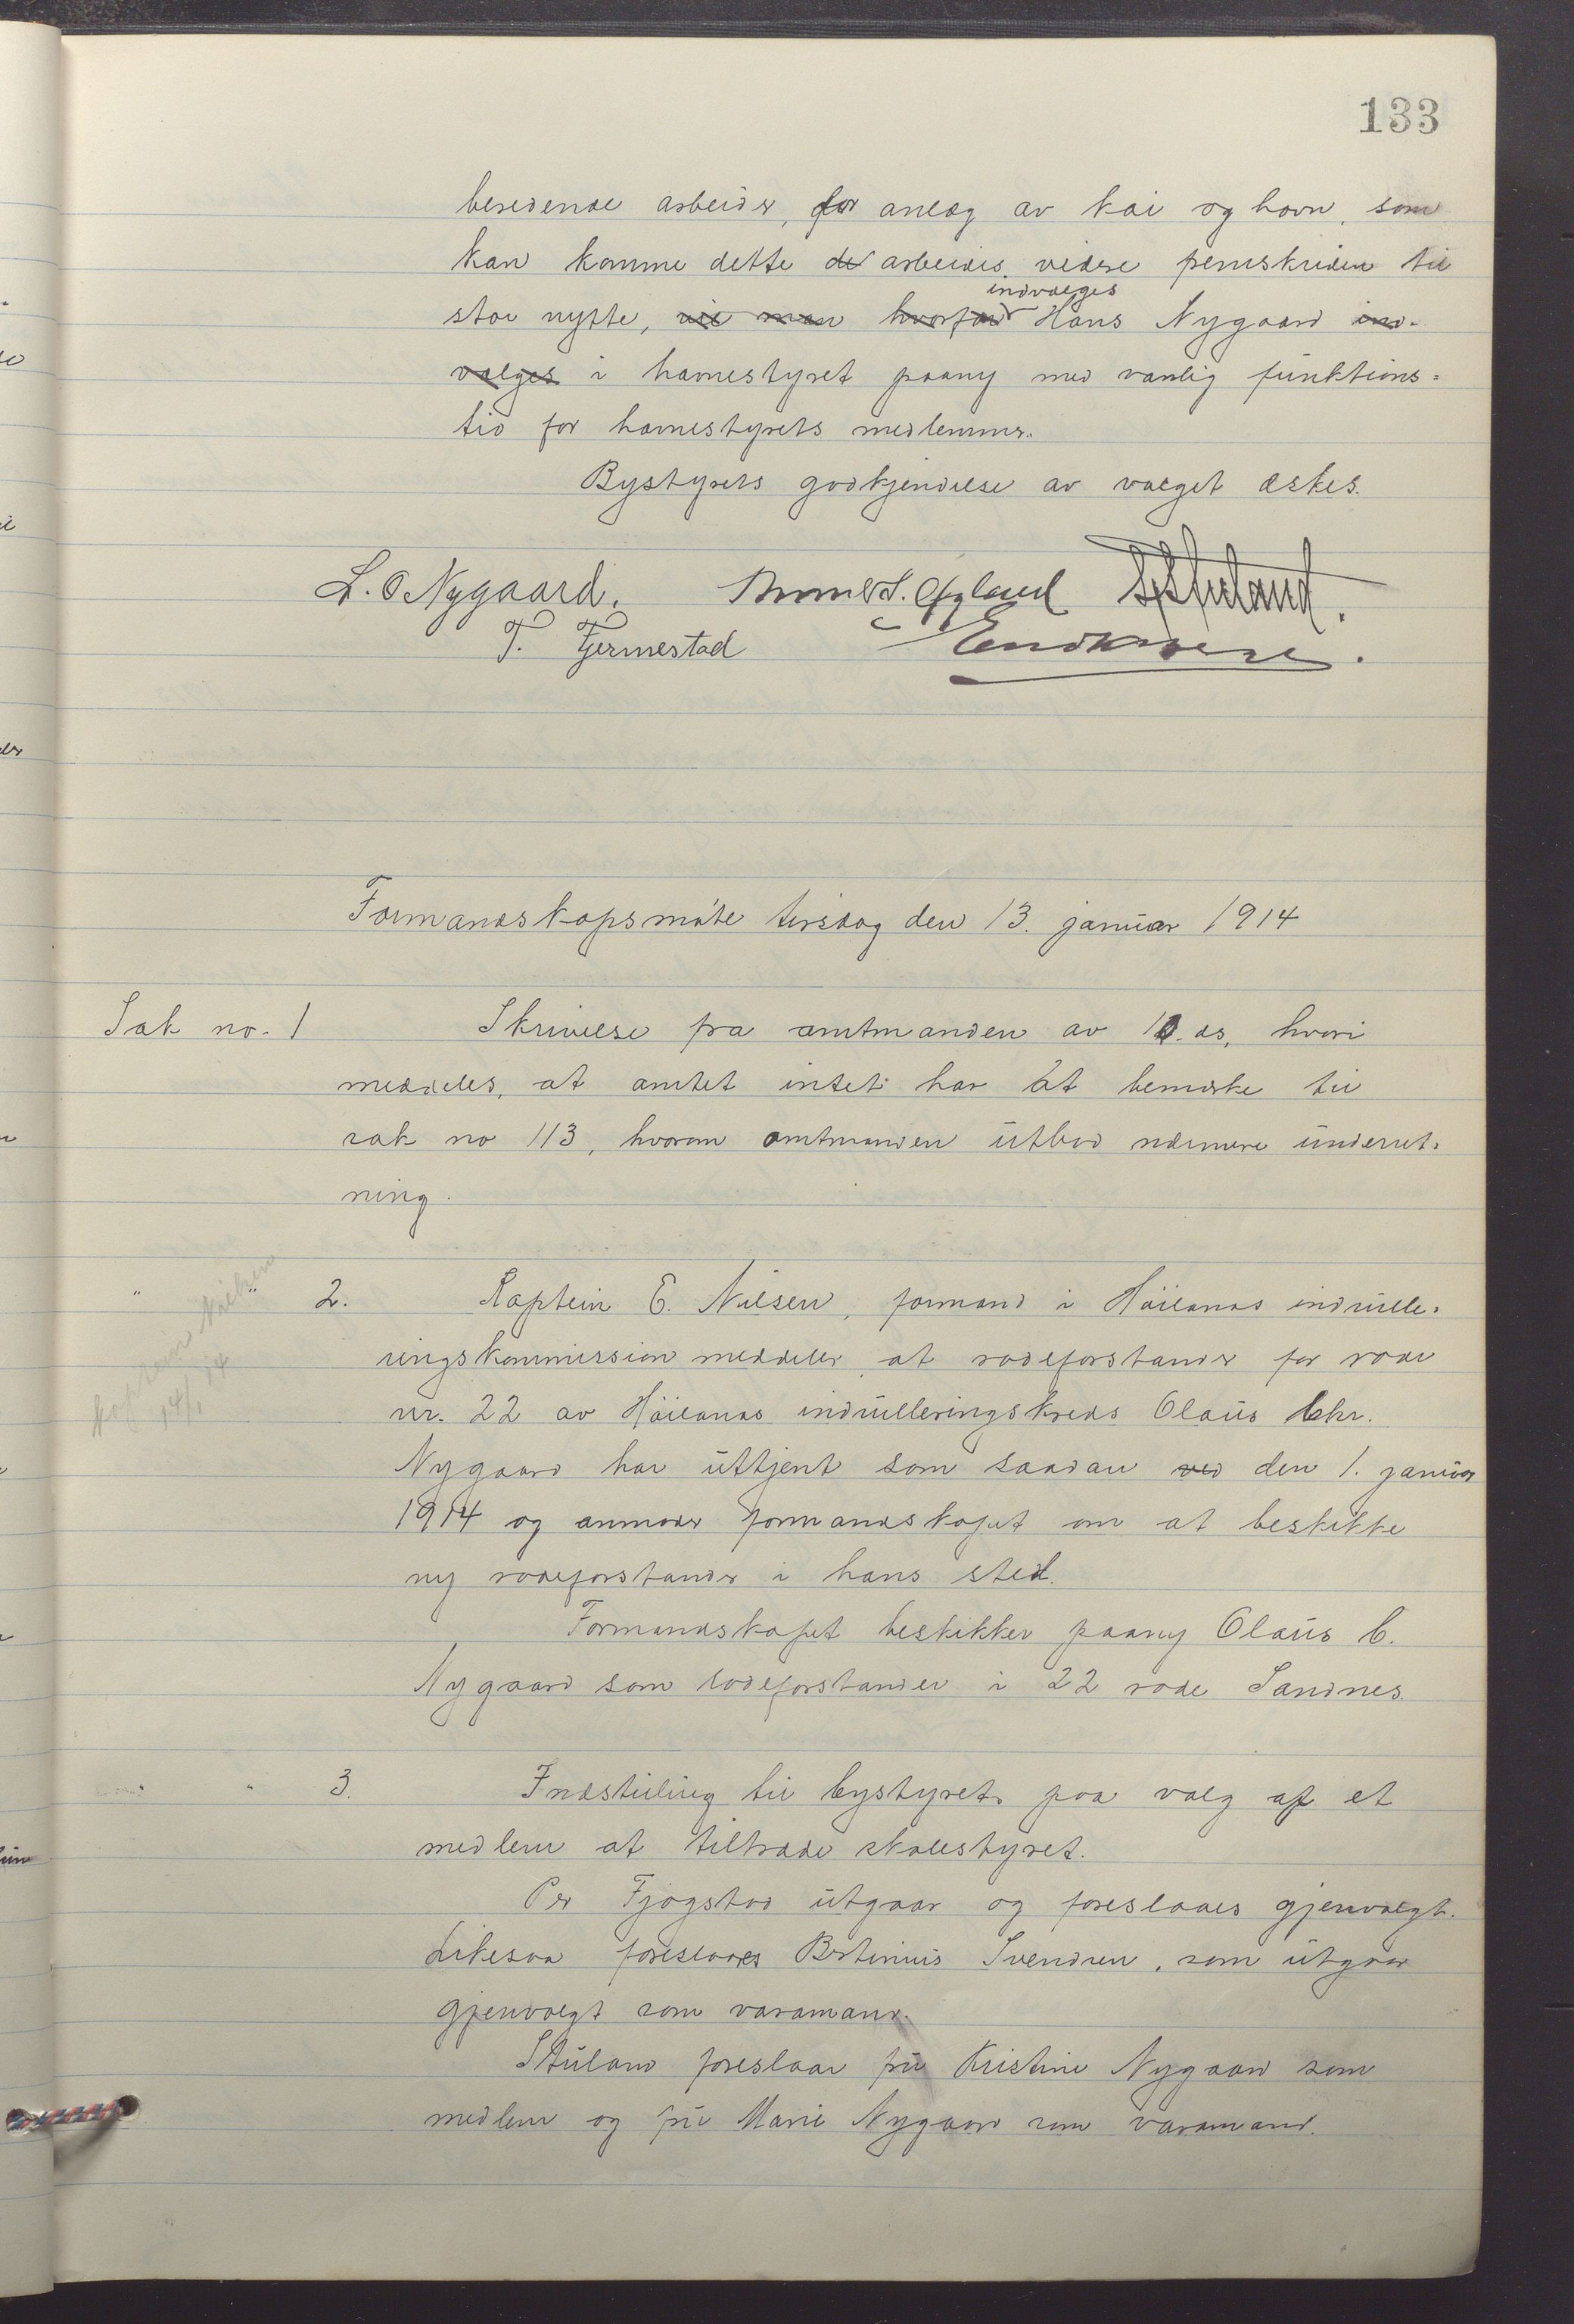 133
beredende arbeider, for anlæg av kai og havn, som
kan komme dette de arbeides videre fremskriden til
stor nytte, vil man hvorfor indvælges Hans Nygaard ind-
vælges i havnestyret paany med vanlig funktions=
tid for havnestyrets medlemmer.
Bystyrets godkjendelse av valget æskes.
L. O Nygaard.
T. Tjermestad
Formandskapsmøte tirsdag den 13. januar 1914
Sak no. 1 Skrivelse fra amtmanden av 10. ds, hvori
meddeles, at amtet intet har at bemerke til
sak no 113, hvorom amtmanden utbad nærmere underret-
ning.
" " 2. Kaptein E. Nilsen, formand i Höilands indrulle-
ringskommission meddeler, at rodeforstander for rode
nr. 22 av Höilands indrulleringskreds Olaus Chr.
Nygaard har uttjent som saadan ved den 1. januar
1914 og anmoder formandskapet om at beskikke
ny rodeforstander i hans sted.
Formandskapet beskikker paany Olaus C.
Nygaard som rodeforstander i 22 rode Sandnes.
Kaptein Nielsen
14/1 14
" " 3. Indstilling til bystyret paa valg af et
medlem at tiltræde skolestyret.
Per Fjogstad utgaar og foreslaaes gjenvalgt.
Likesaa foreslaaes Bertinius Svendsen, som utgaar
gjenvalgt som varamand.
Stuland foreslaar fru Kristine Nygaard som
medlem og fru Marie Nygaard som varamand.